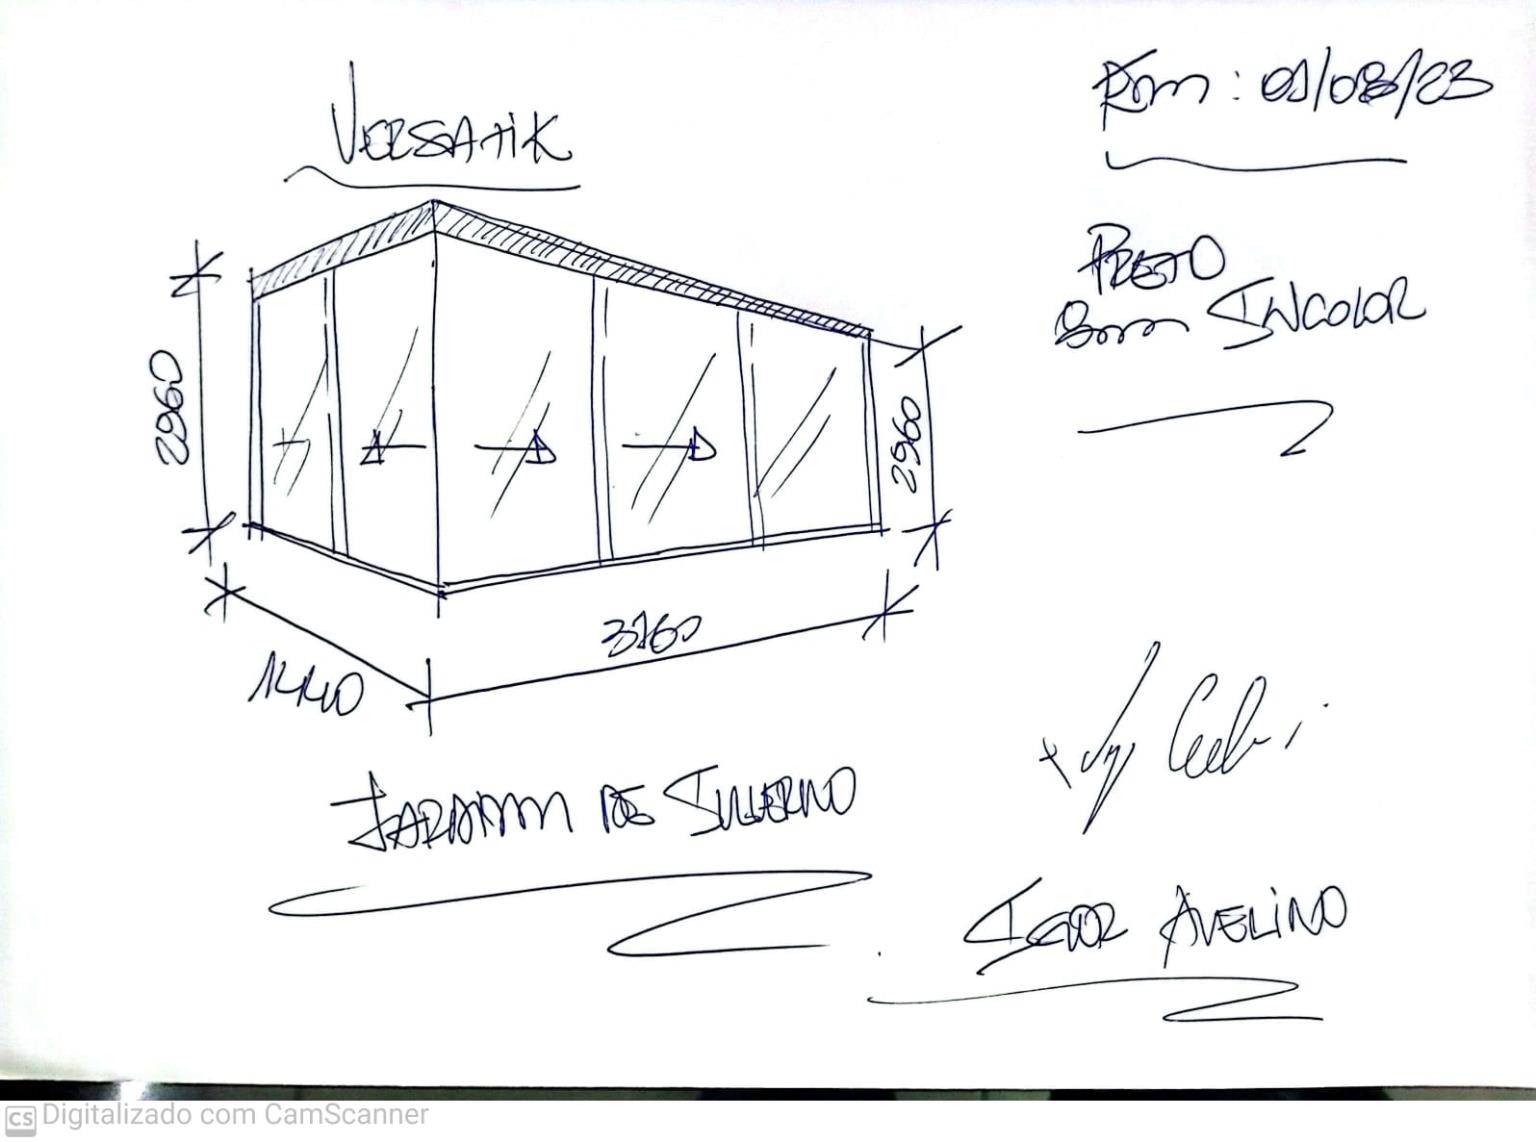 VERSATIK
Rm: 01/08/23
PRETO
8mm INCOLOR
2960
2960
3760
1440
JARDIM DE INVERNO
IGOR AVELINO
CS Digitalizado com CamScanner